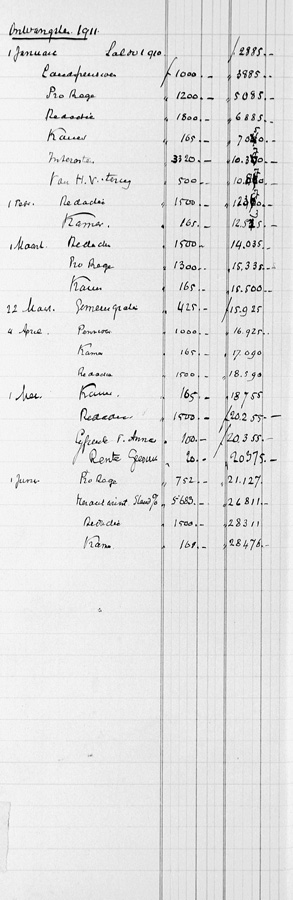 Ontvangsten 1911.
1 Januari Saldo 1910 / 2885.-
Landpensioen / 1000.- / 3985.-
Pro Rege " 1200.- " 5085.-
Redactie " 1800.- " 6885.-
Kamer " 165.- " 7050.-
Interesten " 3320.- " 10.370.-
Van H. V. terug " 500.- " 10.870.-
1 Febr. Redactie " 1500.- " 12370.-
Kamer. " 165.- " 12.535.-
1 Maart. Redactie " 1500.- " 14.035.-
Pro Rege " 1300.- " 15.335.-
Kamer " 165.- " 15.500.-
22 Maart. " 425.- " 15.925
4 April. Pensioen " 1000.- " 16.925.-
Kamer " 165.- " 17.090
Redactie " 1500.- " 18.590
1 Mei. Kamer. " 165.- " 18.755
Redactie " 1500.- / 20.255.-
F. Anna " 100.- " 20.355.-
Rente " 20.- " 20375.-
1 Juni. Pro Rege " 752.- " 21.127.
" 5683.- " 26811.-
Redactie " 1500.- " 28311
Kamer. " 165.- " 28476.-